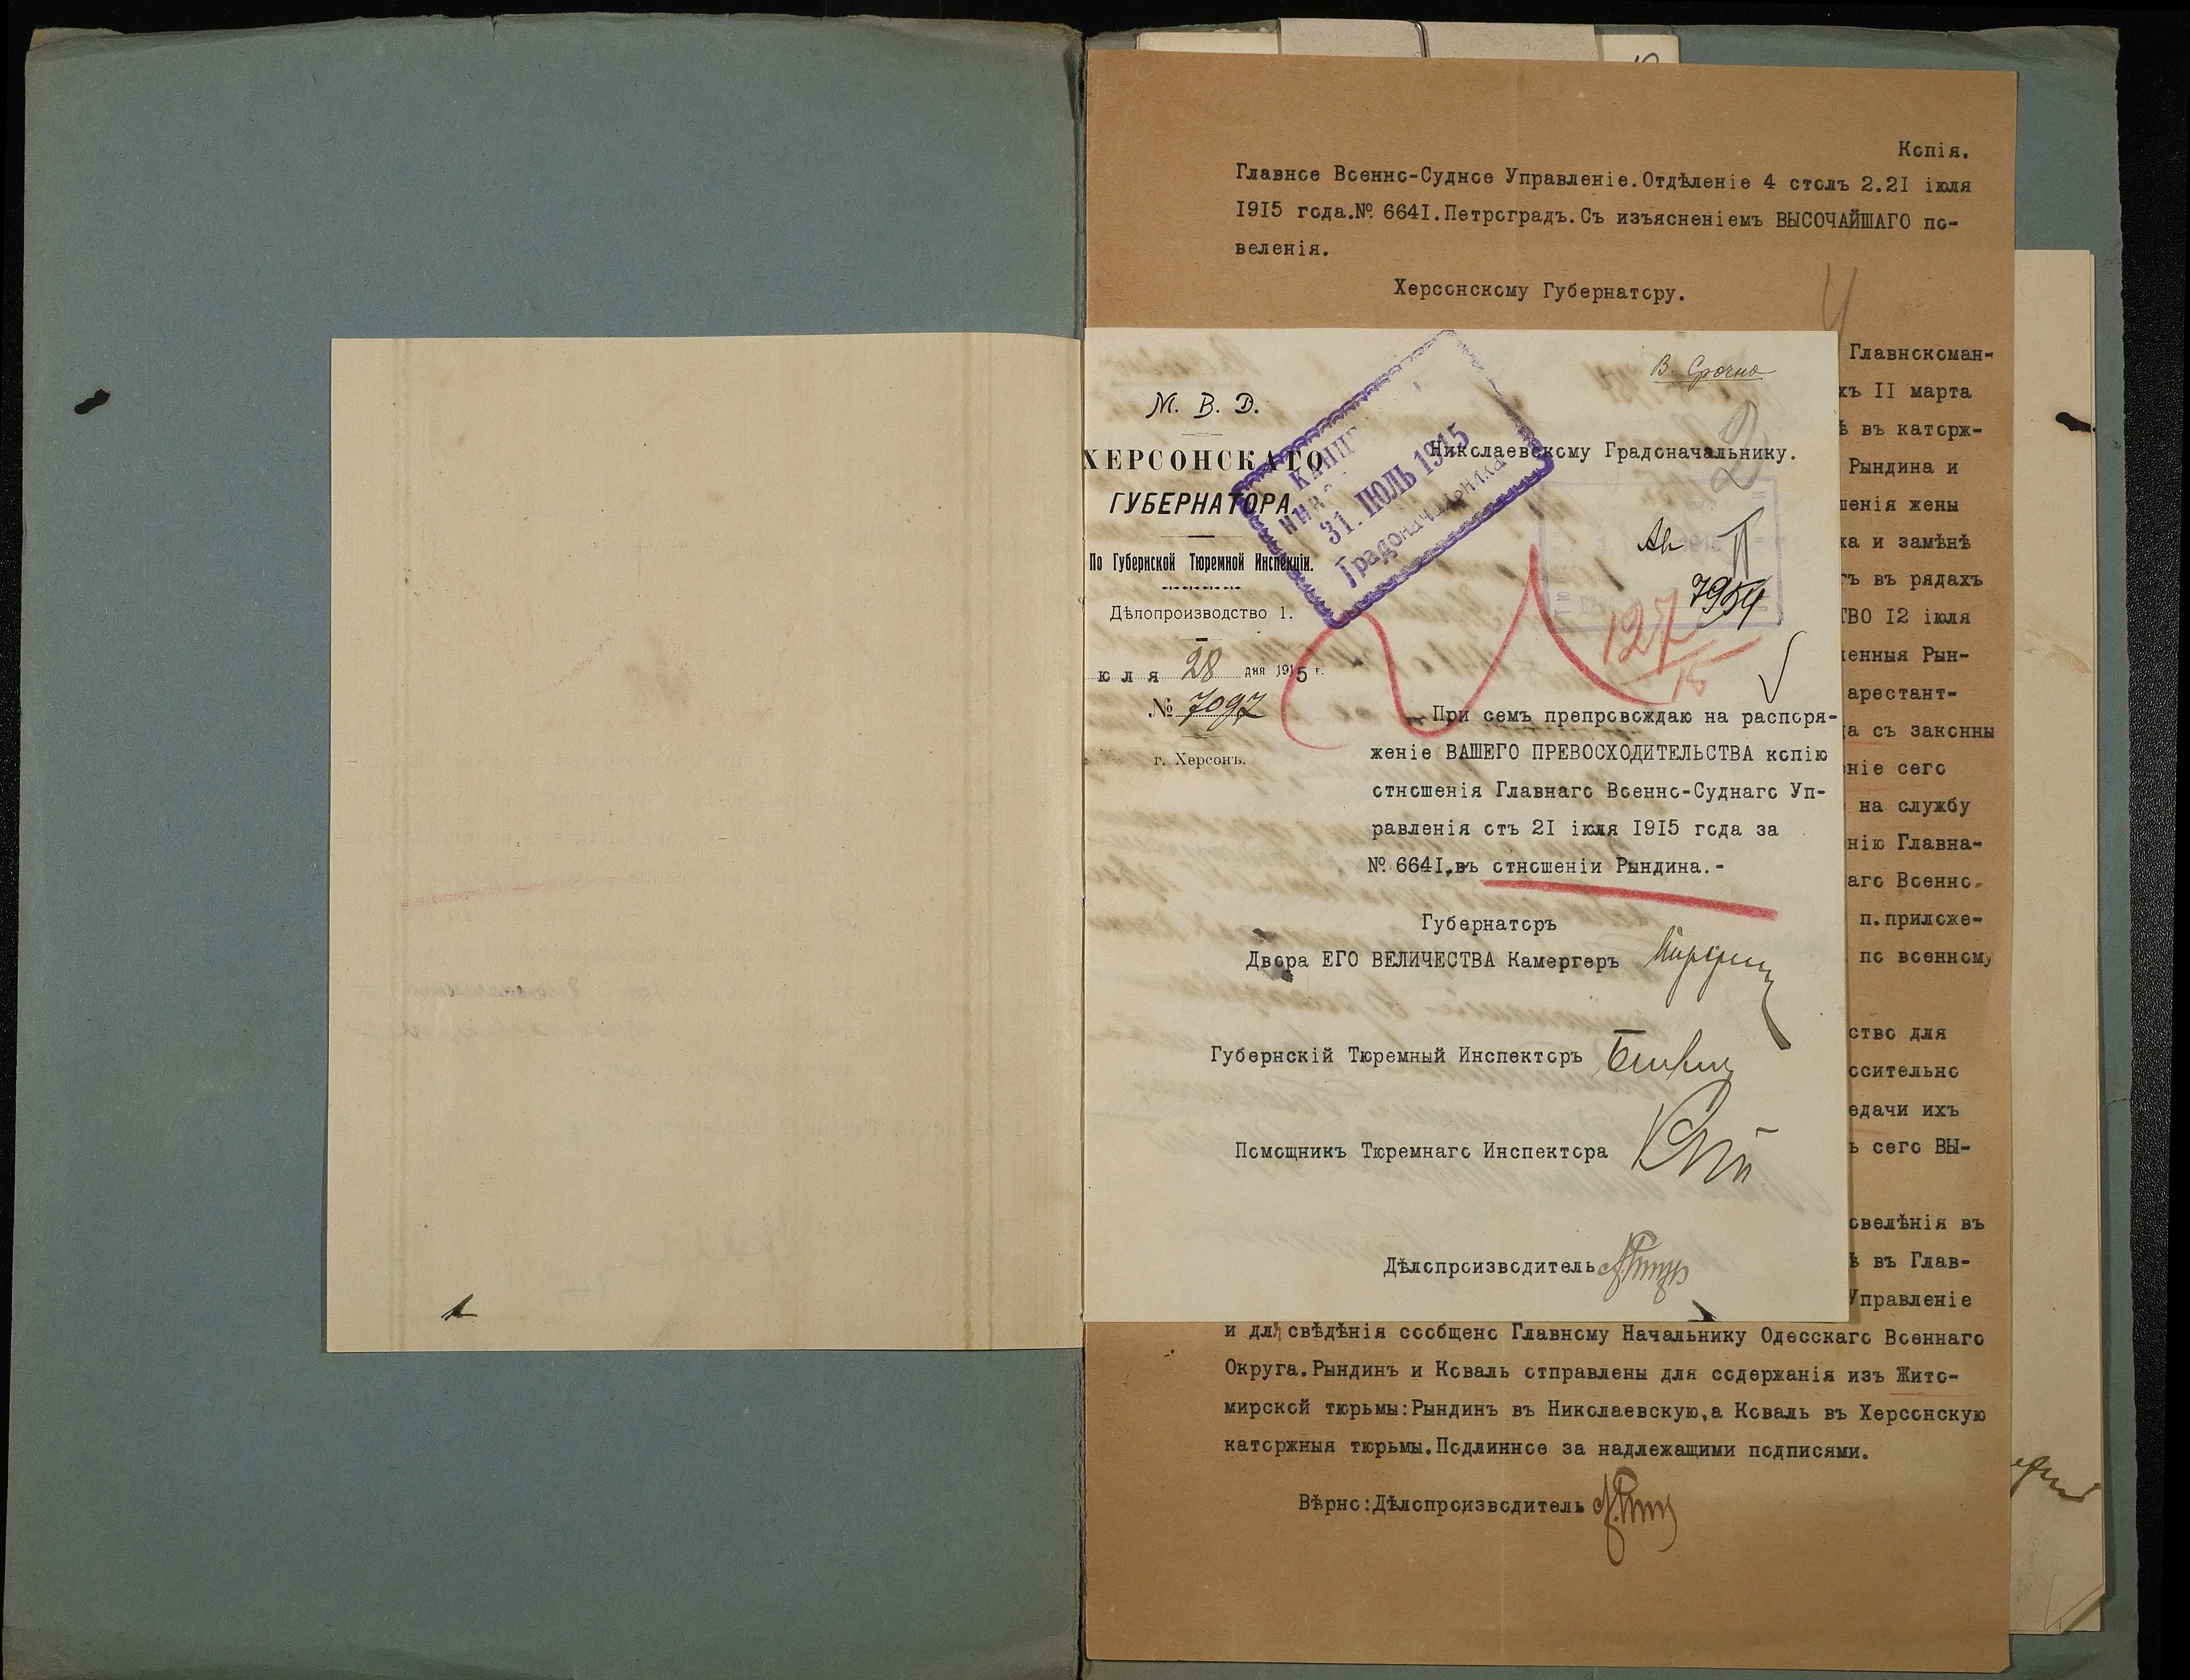 Копія.
Главное Военно-Судное Управленіе.Отдѣленіе 4 столъ 2.21 іюля
1915 года.№ 6641.Петроградъ.Съ изъясненіемъ ВЫСОЧАЙШАГО по-
веленія.
Херсонскому Губернатору.
В. Срочно
М. В. Д.
ХЕРСОНСКАГО
ГУБЕРНАТОРА
По Губернской Тюремной Инспекціи.
Дѣлопроизводство 1.
юля 28 дня 1915 г.
№ 7097
г. Херсонъ.
31. ІЮЛЬ 1915
Градоначальника
Николаевскому Градоначальнику.
2
7954
127
15
При семъ препровождаю на распоря-
женіе ВАШЕГО ПРЕВОСХОДИТЕЛЬСТВА копію
отношенія Главнаго Военно-Суднаго Уп-
равленія отъ 21 іюля 1915 года за
№ 6641,въ отношеніи Рындина.-
Губернаторъ
Двора ЕГО ВЕЛИЧЕСТВА Камергеръ
Губернскій Тюремный Инспекторъ
Помощникъ Тюремнаго Инспектора
Дѣлопроизводитель
Главнокоман-
хъ 11 марта
ѣ въ каторж-
Рындина и
шенія жены
ка и замѣнѣ
гъ въ рядахъ
ТВО 12 іюля
ченныя Рын-
арестант-
да съ законны
ніе сего
на службу
нію Главна-
аго Военно.
п.приложе-
по военному
ство для
осительно
едачи ихъ
ъ сего ВЫ-
овелѣнія въ
ѣ въ Глав-
Управленіе
и для свѣдѣнія сообщено Главному Начальнику Одесскаго Военнаго
Округа.Рындинъ и Коваль отправлены для содержанія изъ Жито-
мирской тюрьмы:Рындинъ въ Николаевскую,а Коваль въ Херсонскую
каторжныя тюрьмы.Подлинное за надлежащими подписями.
Вѣрно:Дѣлопроизводитель